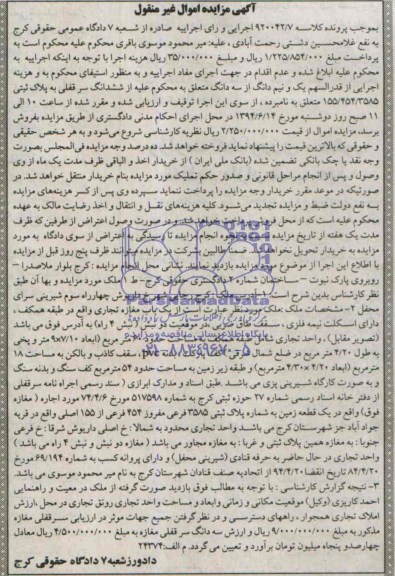 آگهی مزایده اموال غیر منقول
بموجب پرونده کلاسه ۹۲۰۰۴۲/۷ اجرایی و رای اجراییه صادره از شعبه ۷ دادگاه عمومی حقوقی کرج
به نفع غلامحسین دشتی رحمت آبادی ، علیه: میر محمود موسوی باقری محکوم علیه محکوم است به
پرداخت مبلغ ۱/۲۲۵/۸۵۴/۰۰۰ ریال و مبلغ ۳۵/۰۰۰/۰۰۰ ریال هزینه اجرا با توجه به اینکه اجراییه به
محکوم علیه ابلاغ شده و عدم اقدام در جهت اجرای مفاد اجراییه و به منظور استیفای محکوم به و هزینه
اجرایی از قدرالسهم یک و نیم دانگ از سه دانگ متعلق به محکوم علیه از ششدانگ سر قفلی به پلاک ثبتی
۱۵۵/۴۵۴/۳۵۸۵ متعلق به نامبرده ، از سوی این اجرا توقیف و ارزیابی شده و مقرر شده از ساعت ۱۰ الی
۱۱ صبح روز دوشنبه مورخ ۱۳۹۴/۶/۱۴ در محل اجرای احکام مدنی دادگستری از طریق مزایده بفروش
برسد، مزایده اموال از قیمت ۲/۲۵۰/۰۰۰/۰۰۰ ریال نظریه کارشناسی شروع می‌شود و به هر شخص حقیقی
و حقوقی که بالاترین قیمت را پیشنهاد نماید فروخته خواهد شد. ده درصد وجه مزایده فی المجلس بصورت
وجه نقد یا چک بانکی تضمین شده (بانک ملی ایران ) از خریدار اخذ و الباقی ظرف مدت یک ماه از وی
وصول و پس از انجام مراحل قانونی و صدور حکم تملیک مورد مزایده بنام خریدار منتقل خواهد شد. در
صورتیکه در موعد مقرر خریدار وجه مزایده را پرداخت ننماید سپرده وی پس از کسر هزینه‌های مزایده
به نفع دولت ضبط و مزایده تجدید می‌شود. کلیه هزینه‌های نقل و انتقال و اخذ رضایت مالک به عهده
محکوم علیه است که از محل فروش پرداخت خواهد شد. و در صورت وصول اعتراض از طرفین که ظرف
مدت یک هفته از تاریخ مزایده نحوه انجام مزایده تا رسیدگی به اعتراض از سوی دادگاه به مورد
مزایده به خریدار تحویل نخواهد شد. ضمنا طالبین شرکت در مزایده می‌توانند ظرف پنج روز قبل از مزایده
با اطلاع این اجرا از موضوع مورد مزایده بازدید نمایند. نشانی محل انجام مزایده : کرج بلوار ملاصدرا –
روبروی پارک نبوت – ساختمان شماره دادگستری حقوقی کرج- ملک مورد مزایده و بها آن طبق
نظر کارشناسی بدین شرح است چهارراه سوم شیرینی سرای
محفل ۲- مشخصات ملک: ملک مورد نظر عبارت است از یک باب مغازه تجاری واقع در طبقه همکف ،
دارای اسکلت نیمه فلزی ، سقف طاق ضربی در موقعیت دو نبش ( نبش ۴ راه) به آدرس فوق می باشد
(تصویر مقابل) . واحد تجاری شامل طبقه ۷×۹/۱۰ متر و پخی
به طول ۴/۲۰ متر مربع در ضلع شمال سقف کاذب و بالکن به مساحت ۱۸
مترمربع (ابعاد ۴/۲۰×۴/۳۰ مترمربع) و طبقه زیر زمین به مساحت حدود ۵۴ مترمربع کف سنگ و بدنه سنگ
و به صورت کارگاه شیرینی پزی می باشد .طبق اسناد و مدارک ابرازی ( سند رسمی اجراه نامه سرقفلی
از دفتر خانه اسناد رسمی شماره ۲۷ حوزه ثبتی کرج به شماره ۵۱۷۵۹۸ مورخ ۷۴/۴/۶ مورد اجاره ( مغازه
فوق) واقع در یک قطعه زمین به شماره پلاک ثبتی ۳۵۸۵ فرعی مفروز ۴۵۴ فرعی از ۱۵۵ اصلی واقع در قریه
جواد آباد جز شهرستان کرج می باشد. واحد تجاری محدود به شمالا : خ اصلی داریوش شرقا : خ فرعی
جنوبا : به مغازه همین پلاک ثبتی و غربا : به مغازه مجاور می باشد ( مغازه دو نبش و نبش ۴ راه می باشد )
واحد تجاری در حال حاضر به حرفه قنادی (شیرینی محفل) و دارای پروانه کسب به شماره ۶۹/۱۹۴ مورخ
۸۴/۴/۲۰ تاریخ انقضا ۹۴/۴/۲۰ از اتحادیه صنف قنادان شهرستان کرج به نام میر محمود موسوی می باشد.
۳- نتیجه گزارش کارشناسی : با توجه به مطالب فوق بازدید صورت گرفته از ملک در معیت و راهنمایی
احمد کاریزی (وکیل) موقعیت مکانی و زمانی وابعاد و مساحت واحد تجاری رونق تجاری در محل ،ارزش
املاک تجاری همجوار ، راههای دسترسی و در نظر گرفتن جمیع جهات موثر در ارزیابی سرقفلی مغازه
مذکور به مبلغ ۹/۰۰۰/۰۰۰/۰۰۰ ریال و ارزش سه دانگ سر قفلی مغازه به مبلغ ۴/۵۰۰/۰۰۰/۰۰۰ ریال معادل
چهارصدو پنجاه میلیون تومان برآورد و تعیین می گردد. م الف:۲۴۳۷۴
دادورز شعبه ۷ دادگاه حقوقی کرج